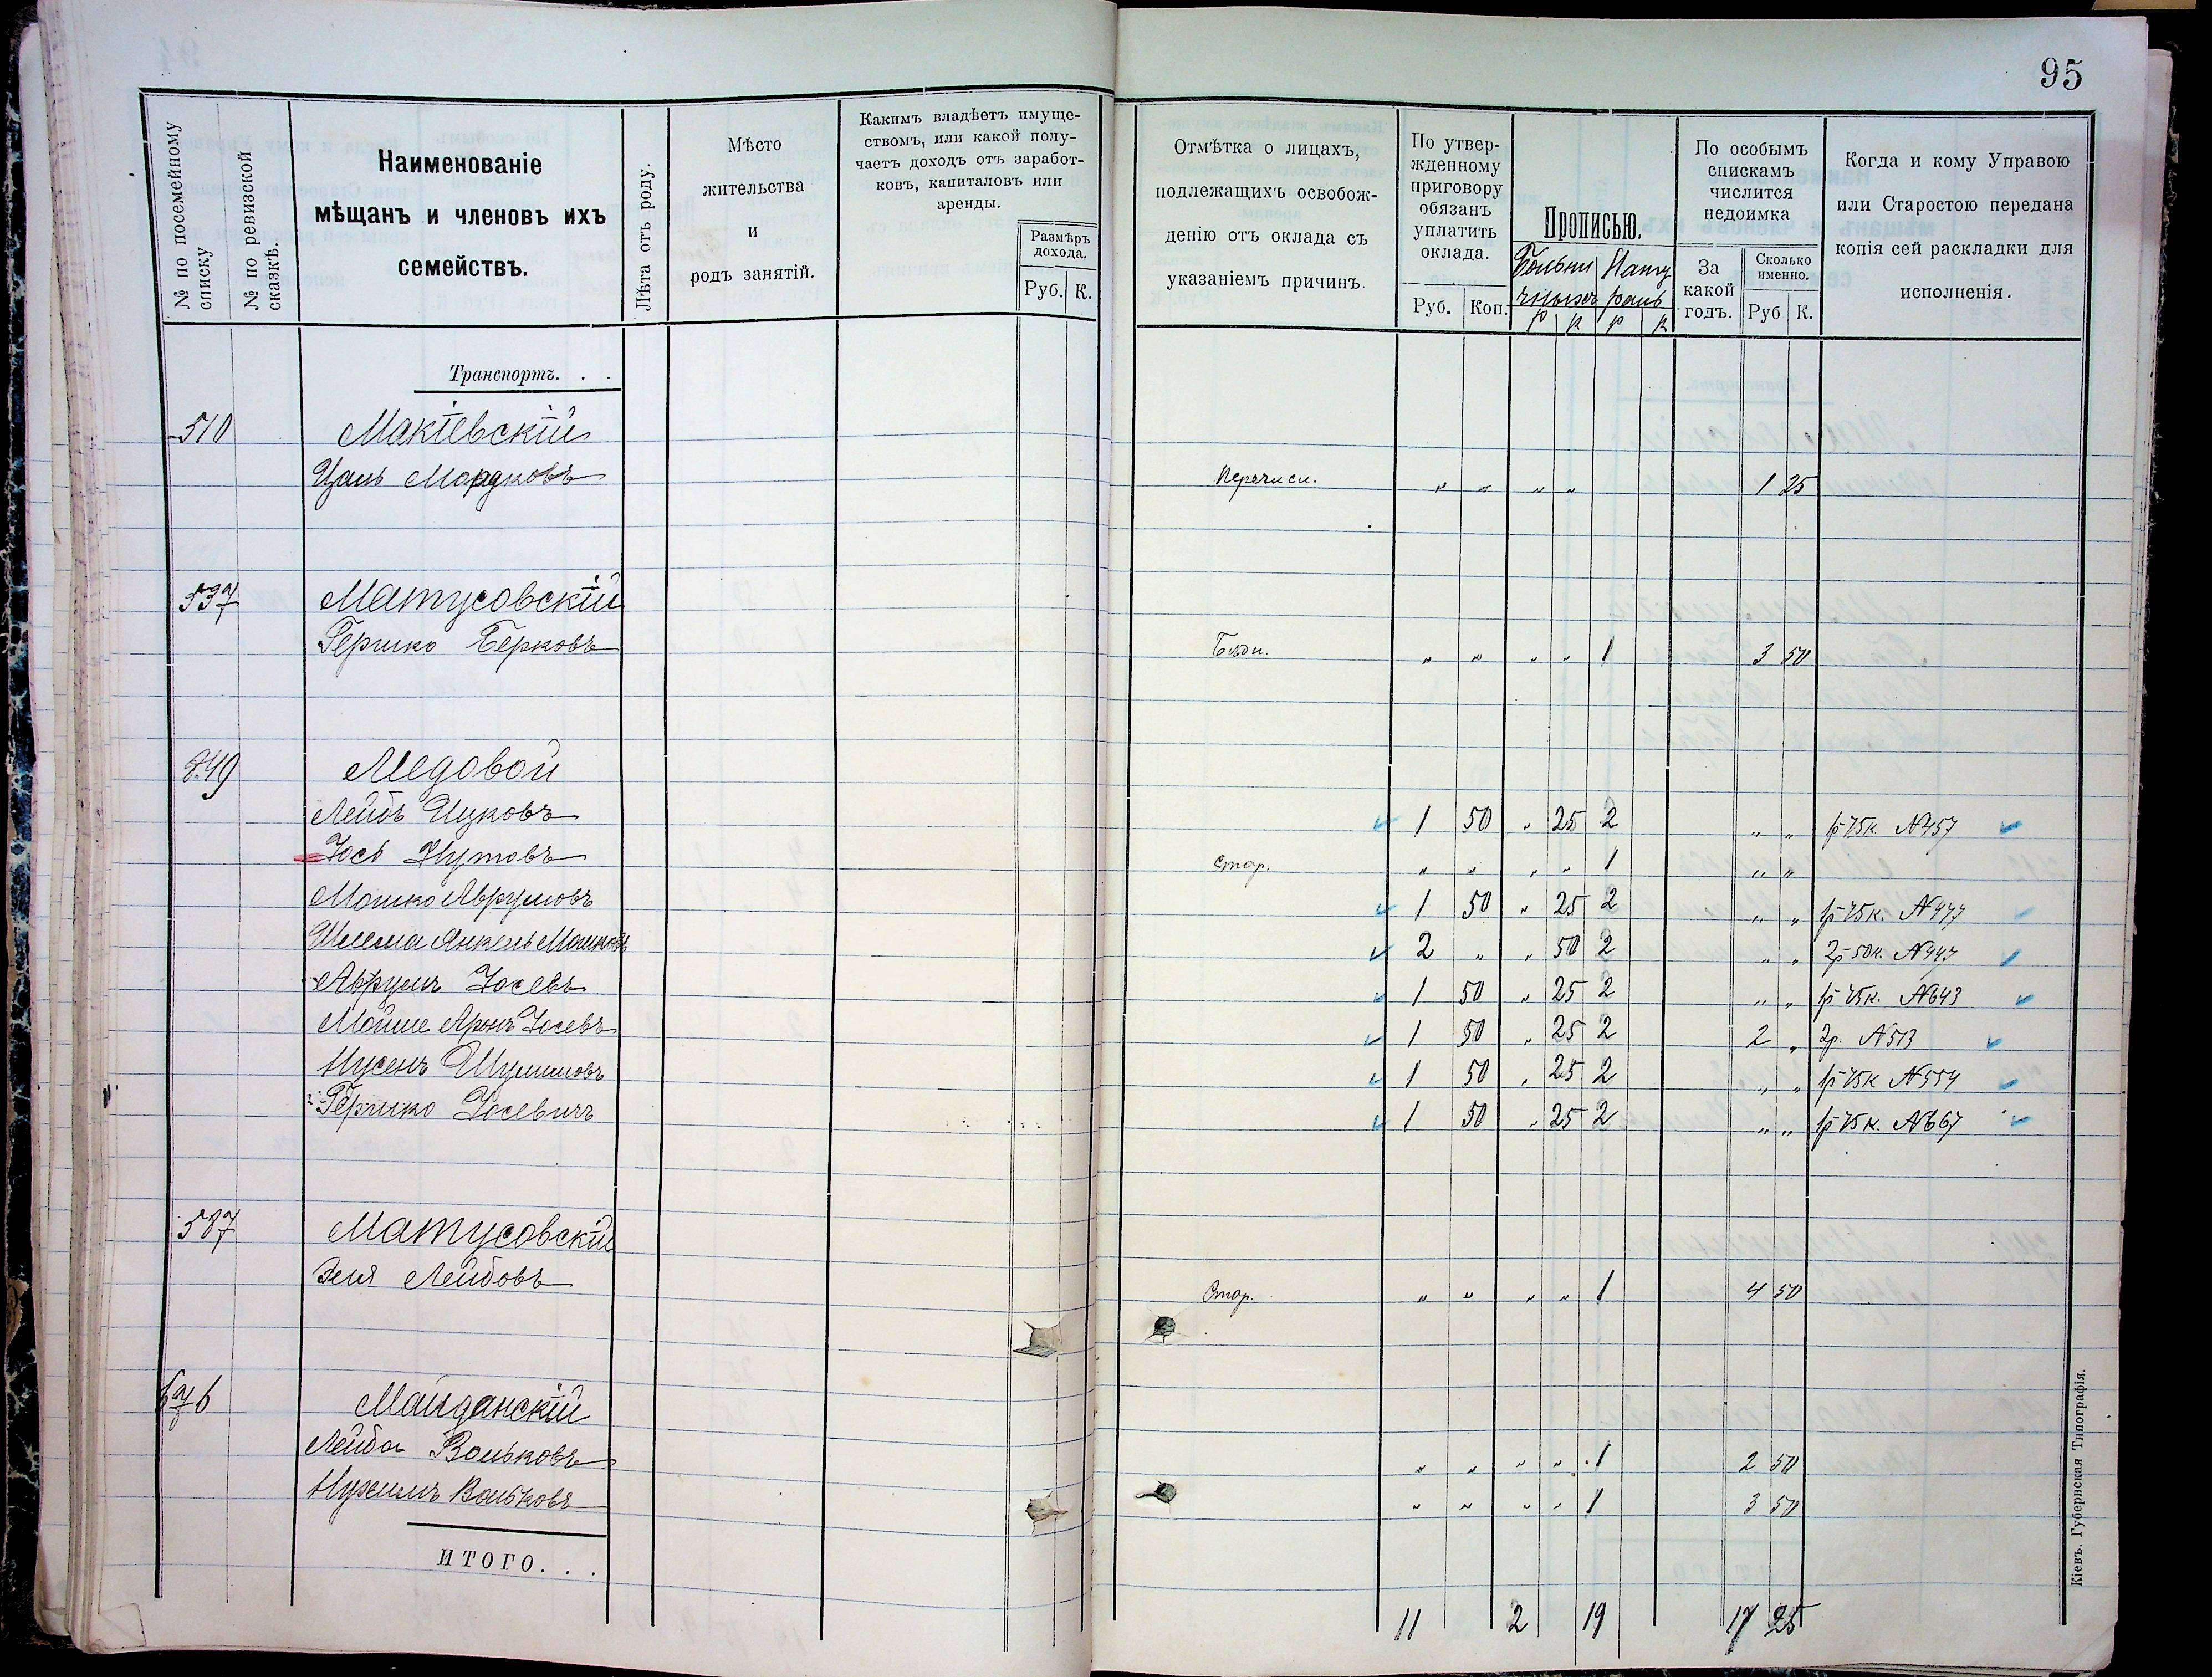 95
№ по посемейному списку
№ по ревизской сказкѣ.
Наименованіе
мѣщанъ и членовъ ихъ
семействъ.
Лѣта отъ роду.
Мѣсто
жительства
и
родъ занятій.
Какимъ владѣетъ имуще-
ствомъ, или какой полу-
чаетъ доходъ отъ заработ-
ковъ, капиталовъ или
аренды.
Размѣръ
дохода.
Руб. К.
Отмѣтка о лицахъ,
подлежащихъ освобож-
денію отъ оклада съ
указаніемъ причинъ.
По утвер-
жденному
приговору
обязанъ
уплатить
оклада.
Руб. Коп.
Прописью.
Больни Нату
чныхъ раль
р к р к
По особымъ
спискамъ
числится
недоимка
За
какой
годъ.
Сколько
именно.
Руб К.
Когда и кому Управою
или Старостою передана
копія сей раскладки для
исполненія.
Транспортъ. . .
510 Макіевскій
Цаль Мордковъ Перечисл. " " " " 1 25
537 Матусовскій
Гершко Берковъ Бѣдн. " " " " 1 3 50
849 Медовой
Лейбъ Ицковъ 1 50 " 25 2 " " 1р 75к. №457
Іось Нутовъ Стар. " " " " 1 " "
Мошко Аврумовъ 1 50 " 25 2 " " 1р 75к. №477
Шлема Янкель Мошковъ 2 " " 50 2 " " 2р 50к. №447
Аврумъ Іосевъ 1 50 " 25 2 " " 1р 75к. №643
Мойше Аронъ Іосевъ 1 50 " 25 2 2 " 2р. №513
Нусенъ Шулимовъ 1 50 " 25 2 " " 1р 75к №554
Гершко Іосевичъ 1 50 " 25 2 " " 1р 75к. №667
587 Матусовскій
Эля Лейбовъ Стар. " " " " 1 4 50
676 Майданскій
Лейба Вольковъ " " " " 1 2 50
Нухимъ Вольковъ " " " " 1 3 50
ИТОГО. . .
11 2 19 17 25
Кіевъ. Губернская Типографія.